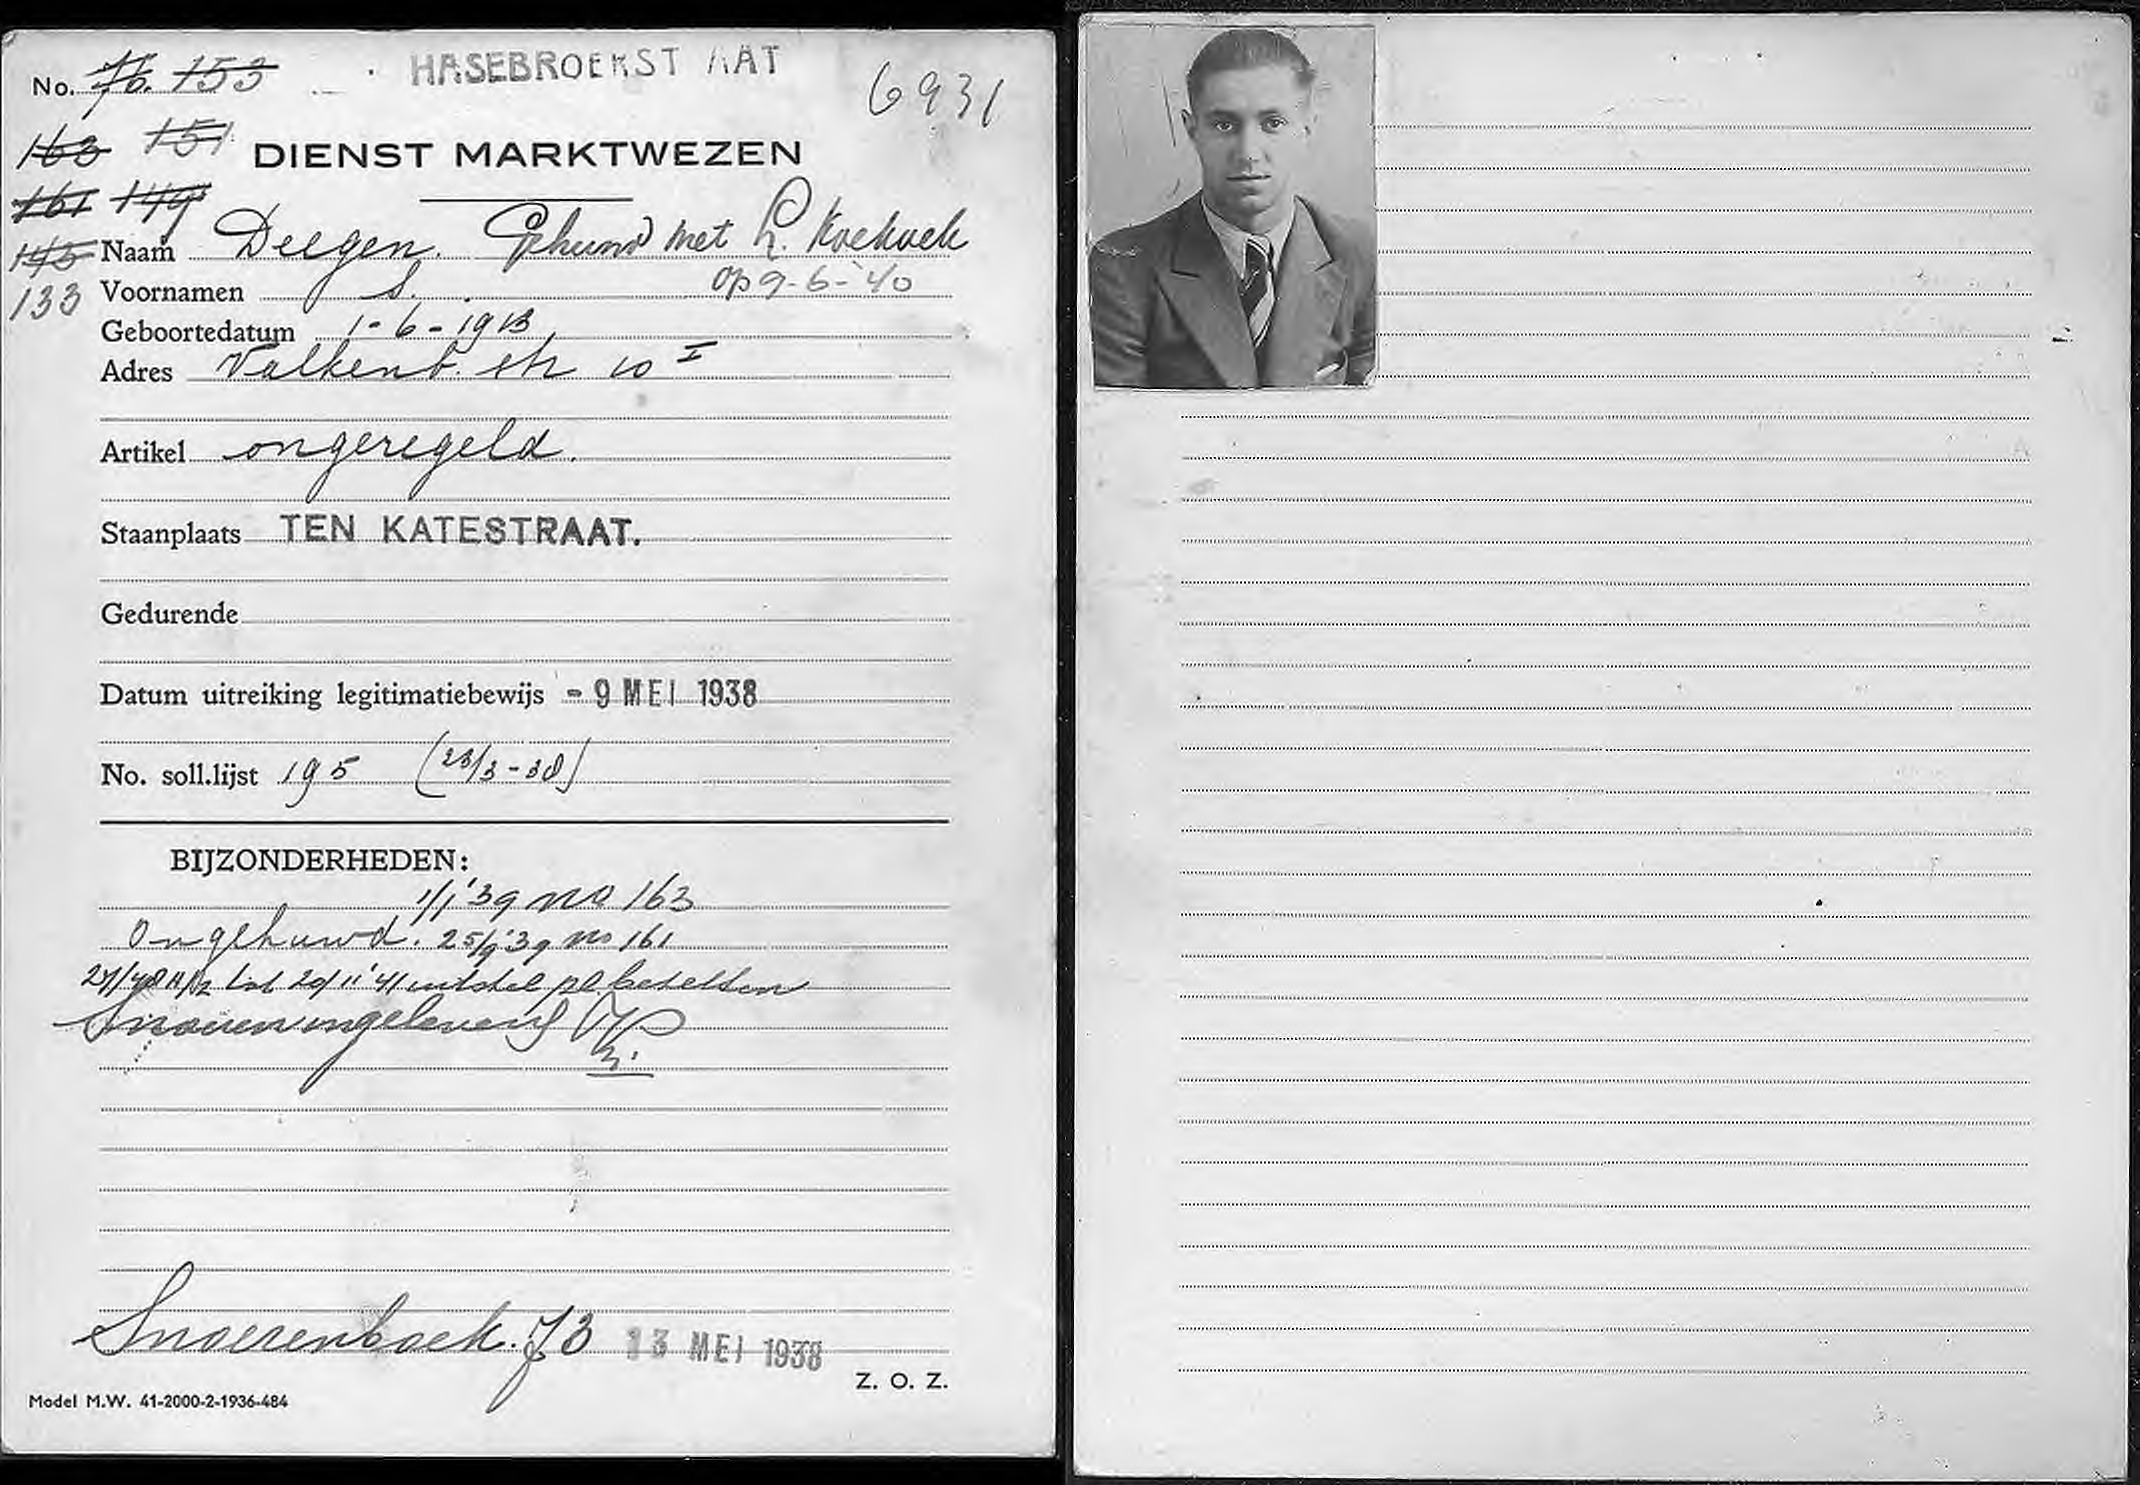 HASEBROEKST AAT
No. 76. 153
6931
163 151
DIENST MARKTWEZEN
161 149
145 Naam Deegen. Gehuwd met L. Koekoek
133 Voornamen S. op 9-6-'40
Geboortedatum 1-6-1913
Adres Valkenb. str 10 I
Artikel ongeregeld.
Staanplaats TEN KATESTRAAT.
Gedurende
Datum uitreiking legitimatiebewijs - 9 MEI 1938
No. soll.lijst 195 (23/3-38)
BIJZONDERHEDEN:
1/1 '39 no 163
Ongehuwd. 25/9 '39 no 161
tot 20/11 '41 uitstel pl. bezetten
Snoeren ingeleverd
Snoerenboek. J3 13 MEI 1938
Z. O. Z.
Model M.W. 41-2000-2-1936-484